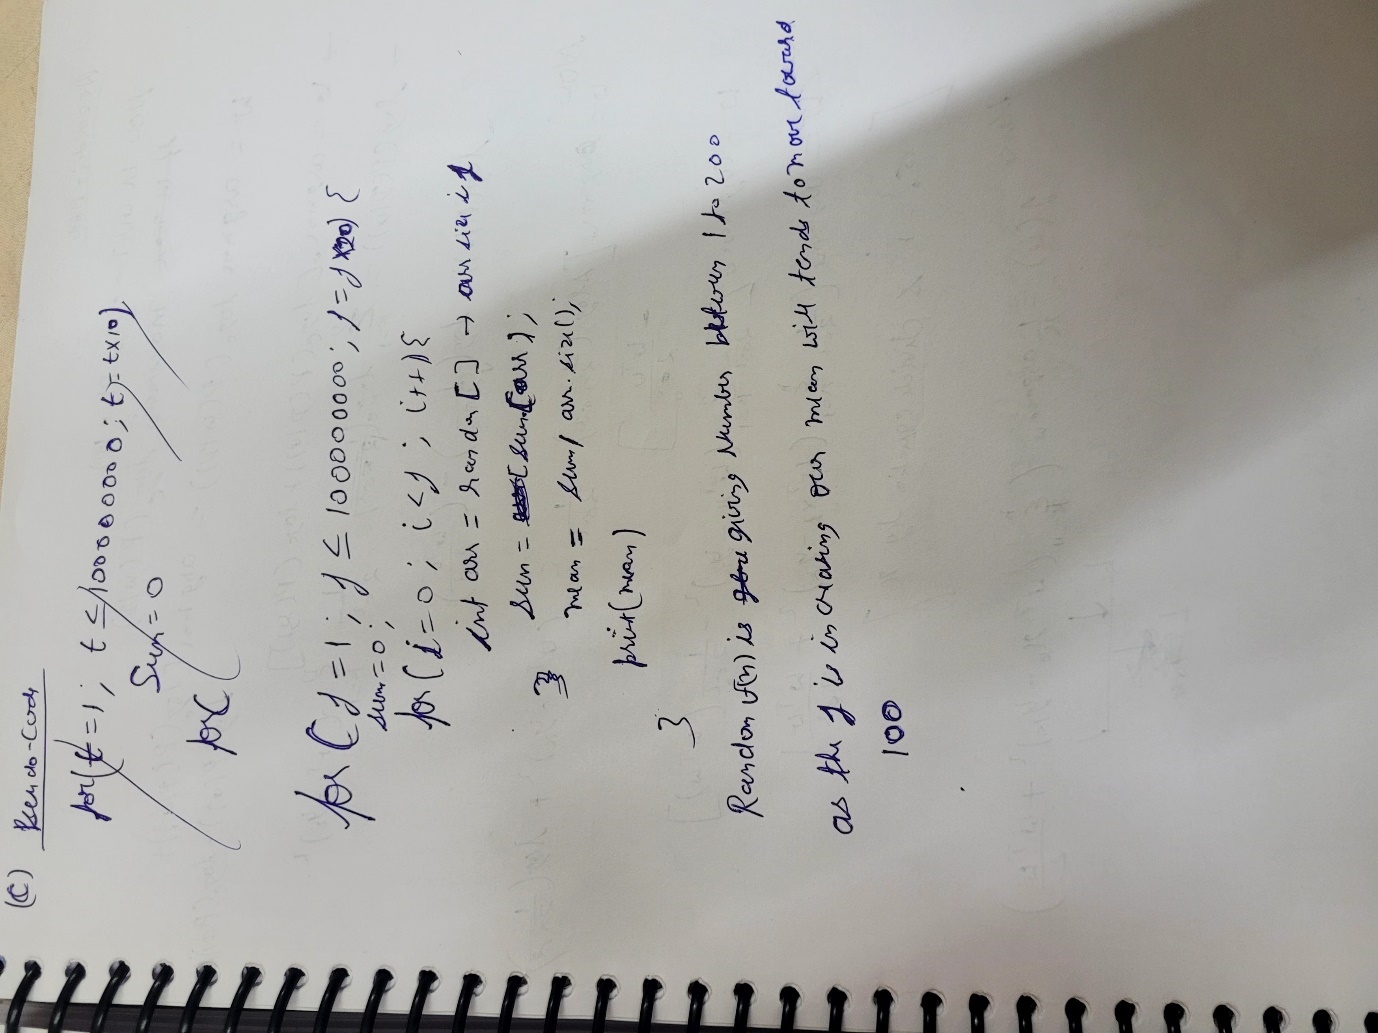 (C) Pseudo-Code
for(t=1; t≤100000000; t=t×10)
Sum=0
for(
for(j=1; j≤100000000; j=j×20){
sum=0;
for(i=0; i<j; i++){
int arr = random[] → arr size is j
sum = sum(arr);
mean = sum/arr.size();
}
print(mean)
}
Random f(n) is giving Number between 1 to 200
as the j is increasing our mean will tends to move toward
100